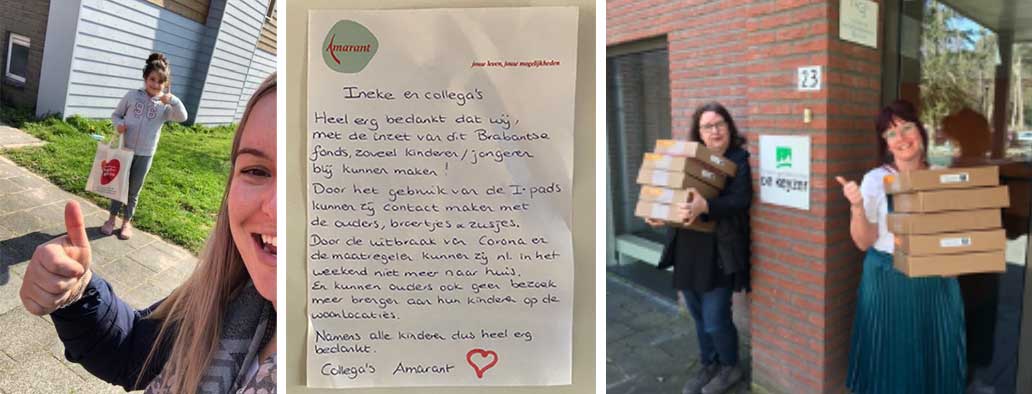 98
Amarant
jouw leven, jouw mogelijkheden
Ineke en collega's
Heel erg bedankt dat wij,
met de inzet van dit Brabantse
fonds, zoveel kinderen/jongeren
blij kunnen maken!
Door het gebruik van de I-pads
kunnen zij contact maken met
de ouders, broertjes & zusjes.
Door de uitbraak van Corona en
de maatregelen kunnen zij nl. in het
weekend niet meer naar huis.
En kunnen ouders ook geen bezoek
meer brengen aan hun kinderen op de
woonlocaties.
Namens alle kinderen dus heel erg
bedankt.
Collega's Amarant
23